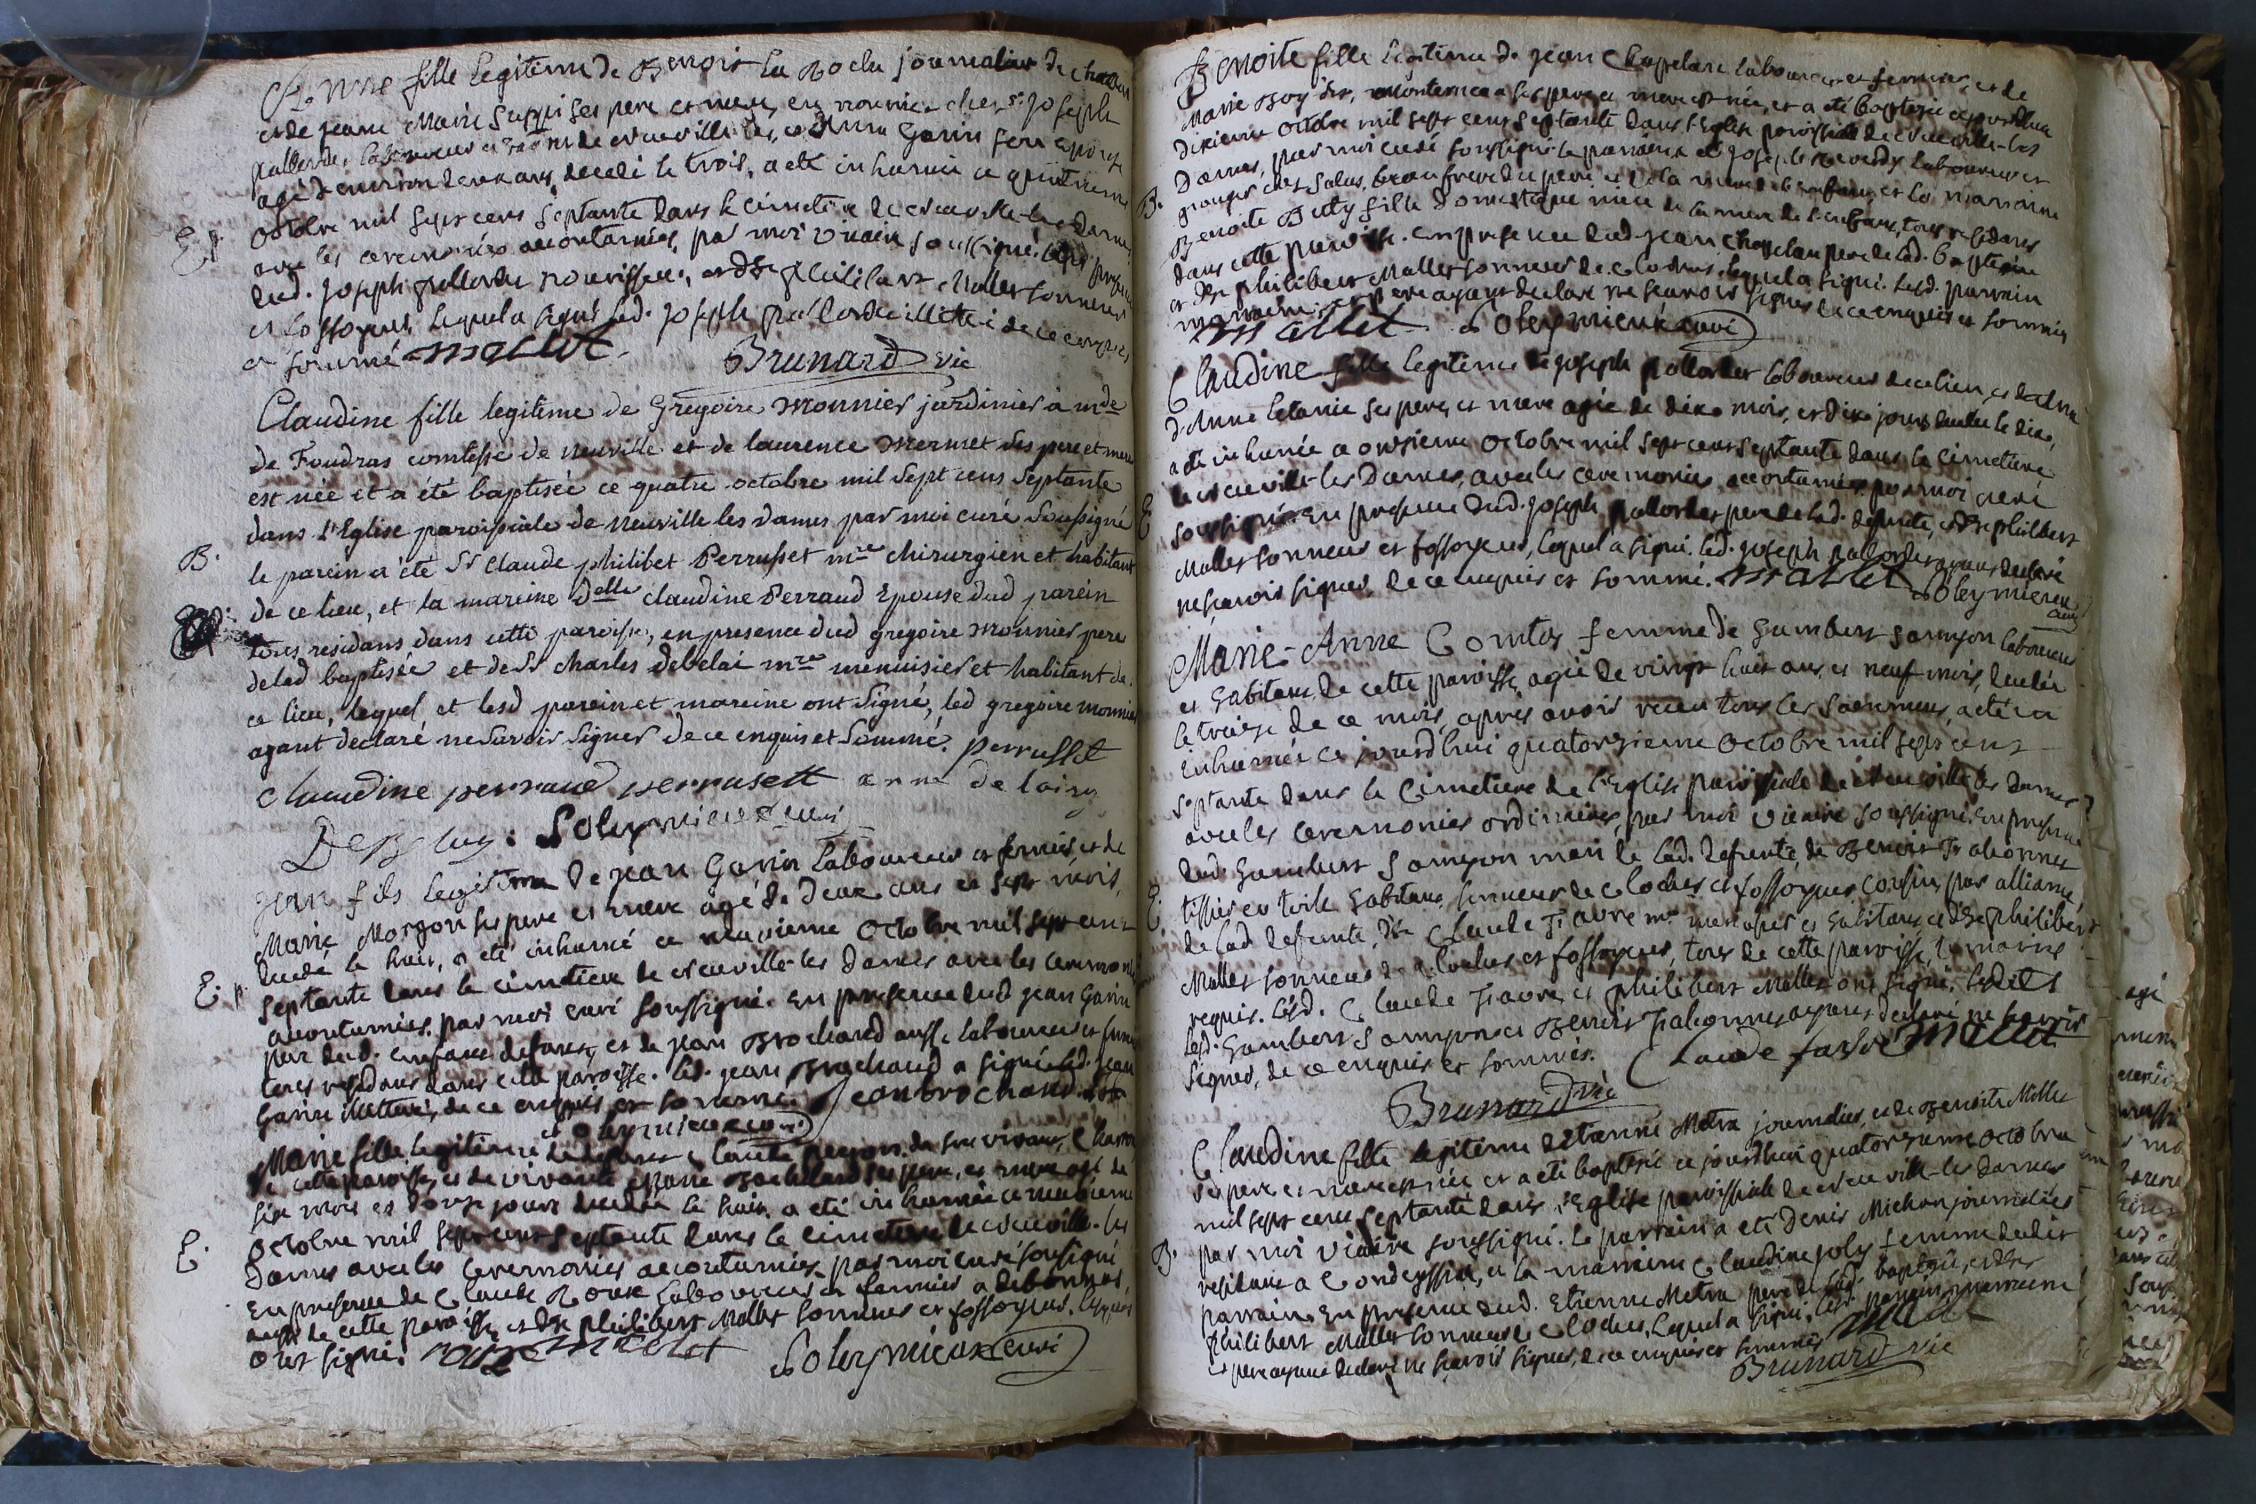 fille legitime de Benoit La Roche journalier de
et de jeanne Marie ses pere et mere, en nourrice chez Sr joseph
pallordet laboureur de neuville les et Anne Garin son epouse
agé d'environ deux ans, decedé le trois, a eté inhumé ce quatrieme
octobre mil sept cens septante dans le cimetiere de neuville-les-dames
avec les ceremonies accoutumées, par moi vicaire soussigné.
dud. joseph pallordet nourissier, et de philibert Mallet sonneur
et fossoyeur, lequel a signé led. joseph pallordet illitteré de ce enquis
et sommé mallet. Brunard vic
E.
Claudine fille legitime de Gregoire Monnier jardinier à mde
de Foudras comtesse de neuville et de laurence mermet ses pere et mere
est née et a été baptisée ce quatre octobre mil sept cens septante
dans l'Eglise paroissiale de neuville les dames par moi curé soussigné
B.
le parein a été Sr Claude philibet Perrusset mre chirurgien et habitant
de ce lieu, et la mareine delle claudine Perraud Epouse dud parein
tous residans dans cette paroisse, en presence dud gregoire monnier pere
de lad baptisée et de Sr charles debelai mre menuisier et habitant de
ce lieu, lequel et lesd parein et mareine ont signé, led gregoire monnier
ayant declaré ne savoir signer de ce enquis et sommé. perrusset
claudine perraud perrusett
Solleymieux curé
jean fils legitime de jean Garin laboureur et fermier et de
Marie Morgon ses pere et mere agé de deux ans et sept mois,
decedé le huit, a eté inhumé ce neuvieme octobre mil sept cens
E.
septante dans le cimetiere de neuville-les dames avec les ceremonies
accoutumées. par moi curé soussigné. En presence dud jean Garin
pere dud. enfant defunt, et de jean Brochand aussi laboureur et fermier
tous residans dans cette paroisse. led. jean Brochand a signé led. jean
Garin illitteré, de ce enquis et sommé. jean brochand
Solleymieux curé
Marie fille legitime de defunt Claude peyson de son vivant
de cette paroisse, et de vivante ses pere, et mere agé de
six mois et douze jours decedée le huit, a eté inhumée ce neuvieme
octobre mil sept cens septante dans le cimetiere de neuville-les
E.
Dames avec les ceremonies accoutumées par moi curé soussigné
En presence de Claude Roux laboureur et fermier
aussi de cette paroisse, et de philibert Mallet sonneur et fossoyeur. lesquels
ont signé. roux mallet Solleymieux curé
Benoite fille legitime de jean Chapelan laboureur et fermier, et de
Marie ses pere et mere est née, et a eté baptisée ce jourdhui
dixieme octobre mil sept cens septante dans l'Eglise paroissiale de neuville-les
Dames, par moi curé soussigné. le parrain a eté joseph laboureur et
B.
beaufrere du pere et de la mere de l'enfant, et la marraine
Benoite fille domestique niece de la mere de l'enfant, tous residans
dans cette paroisse. En presence dud. jean Chapelan pere de lad. baptisée
et de philibert Mallet sonneur de cloches, lequel a signé. lesd. parrain
marraine et pere ayant declaré ne scavoir signer de ce enquis et sommés
mallet. Solleymieux curé
Claudine fille legitime de joseph pallordet laboureur de ce lieu, et
d'Anne letanie ses pere, et mere agée de dix mois, et dix jours decedée le dix,
a eté inhumée ce onzieme octobre mil sept cens septante dans le cimetiere
de neuville-les-Dames, avec les ceremonies accoutumées par moi curé
E.
soussigné. En presence dud. joseph pallordet pere de lad. defunte, et de philibert
Mallet sonneur et fossoyeur, lequel a signé. led. joseph pallordet ayant declaré
ne scavoir signer, de ce enquis et sommé. mallet Solleymieux
curé
Marie-Anne Comtes femme de Gambert Samyon laboureur
et habitant de cette paroisse, agée de vingt huit ans, et neuf mois, decedée
le treize de ce mois, apres avoir receu tous les sacremens, a eté
inhumée ce jourdhui quatorzieme octobre mil sept cens
septante dans le cimetiere de l'Eglise paroissiale de neuville-les Dames
avec les ceremonies ordinaires, par moi vicaire soussigné. En presence
dud. Gambert Samyon mari de lad. defunte, de Benoit
E.
tissier en toile habitant, cousin par alliance
de lad. defunte, de Claude Favre mre et habitant, et de philibert
Mallet sonneur de cloches et fossoyeur, tous de cette paroisse, temoins
requis. Lesd. Claude Favre, et philibert Mallet ont signé,
led. Gambert Samyon et Benoit ayant declaré ne scavoir
signer, de ce enquis et sommés. Claude favre mallet
Brunard vic
Claudine fille legitime d'etienne Metra journalier, et de Benoite Millet
ses pere et mere est née et a eté baptisée ce jourdhui quatorzieme octobre
mil sept cens septante dans l'Eglise paroissiale de neuville-les dames
B.
par moi vicaire soussigné. le parrain a eté Denis Michon journalier
residant a Condeyssiat, et la marraine Claudine joly femme dudit
parrain. En presence dud. Etienne Metra pere de lad. baptisée, et de
philibert Mallet sonneur de cloches, lequel a signé. lesd. parrain, marraine
et pere ayant declaré ne scavoir signer, de ce enquis et sommés mallet
Brunard vic